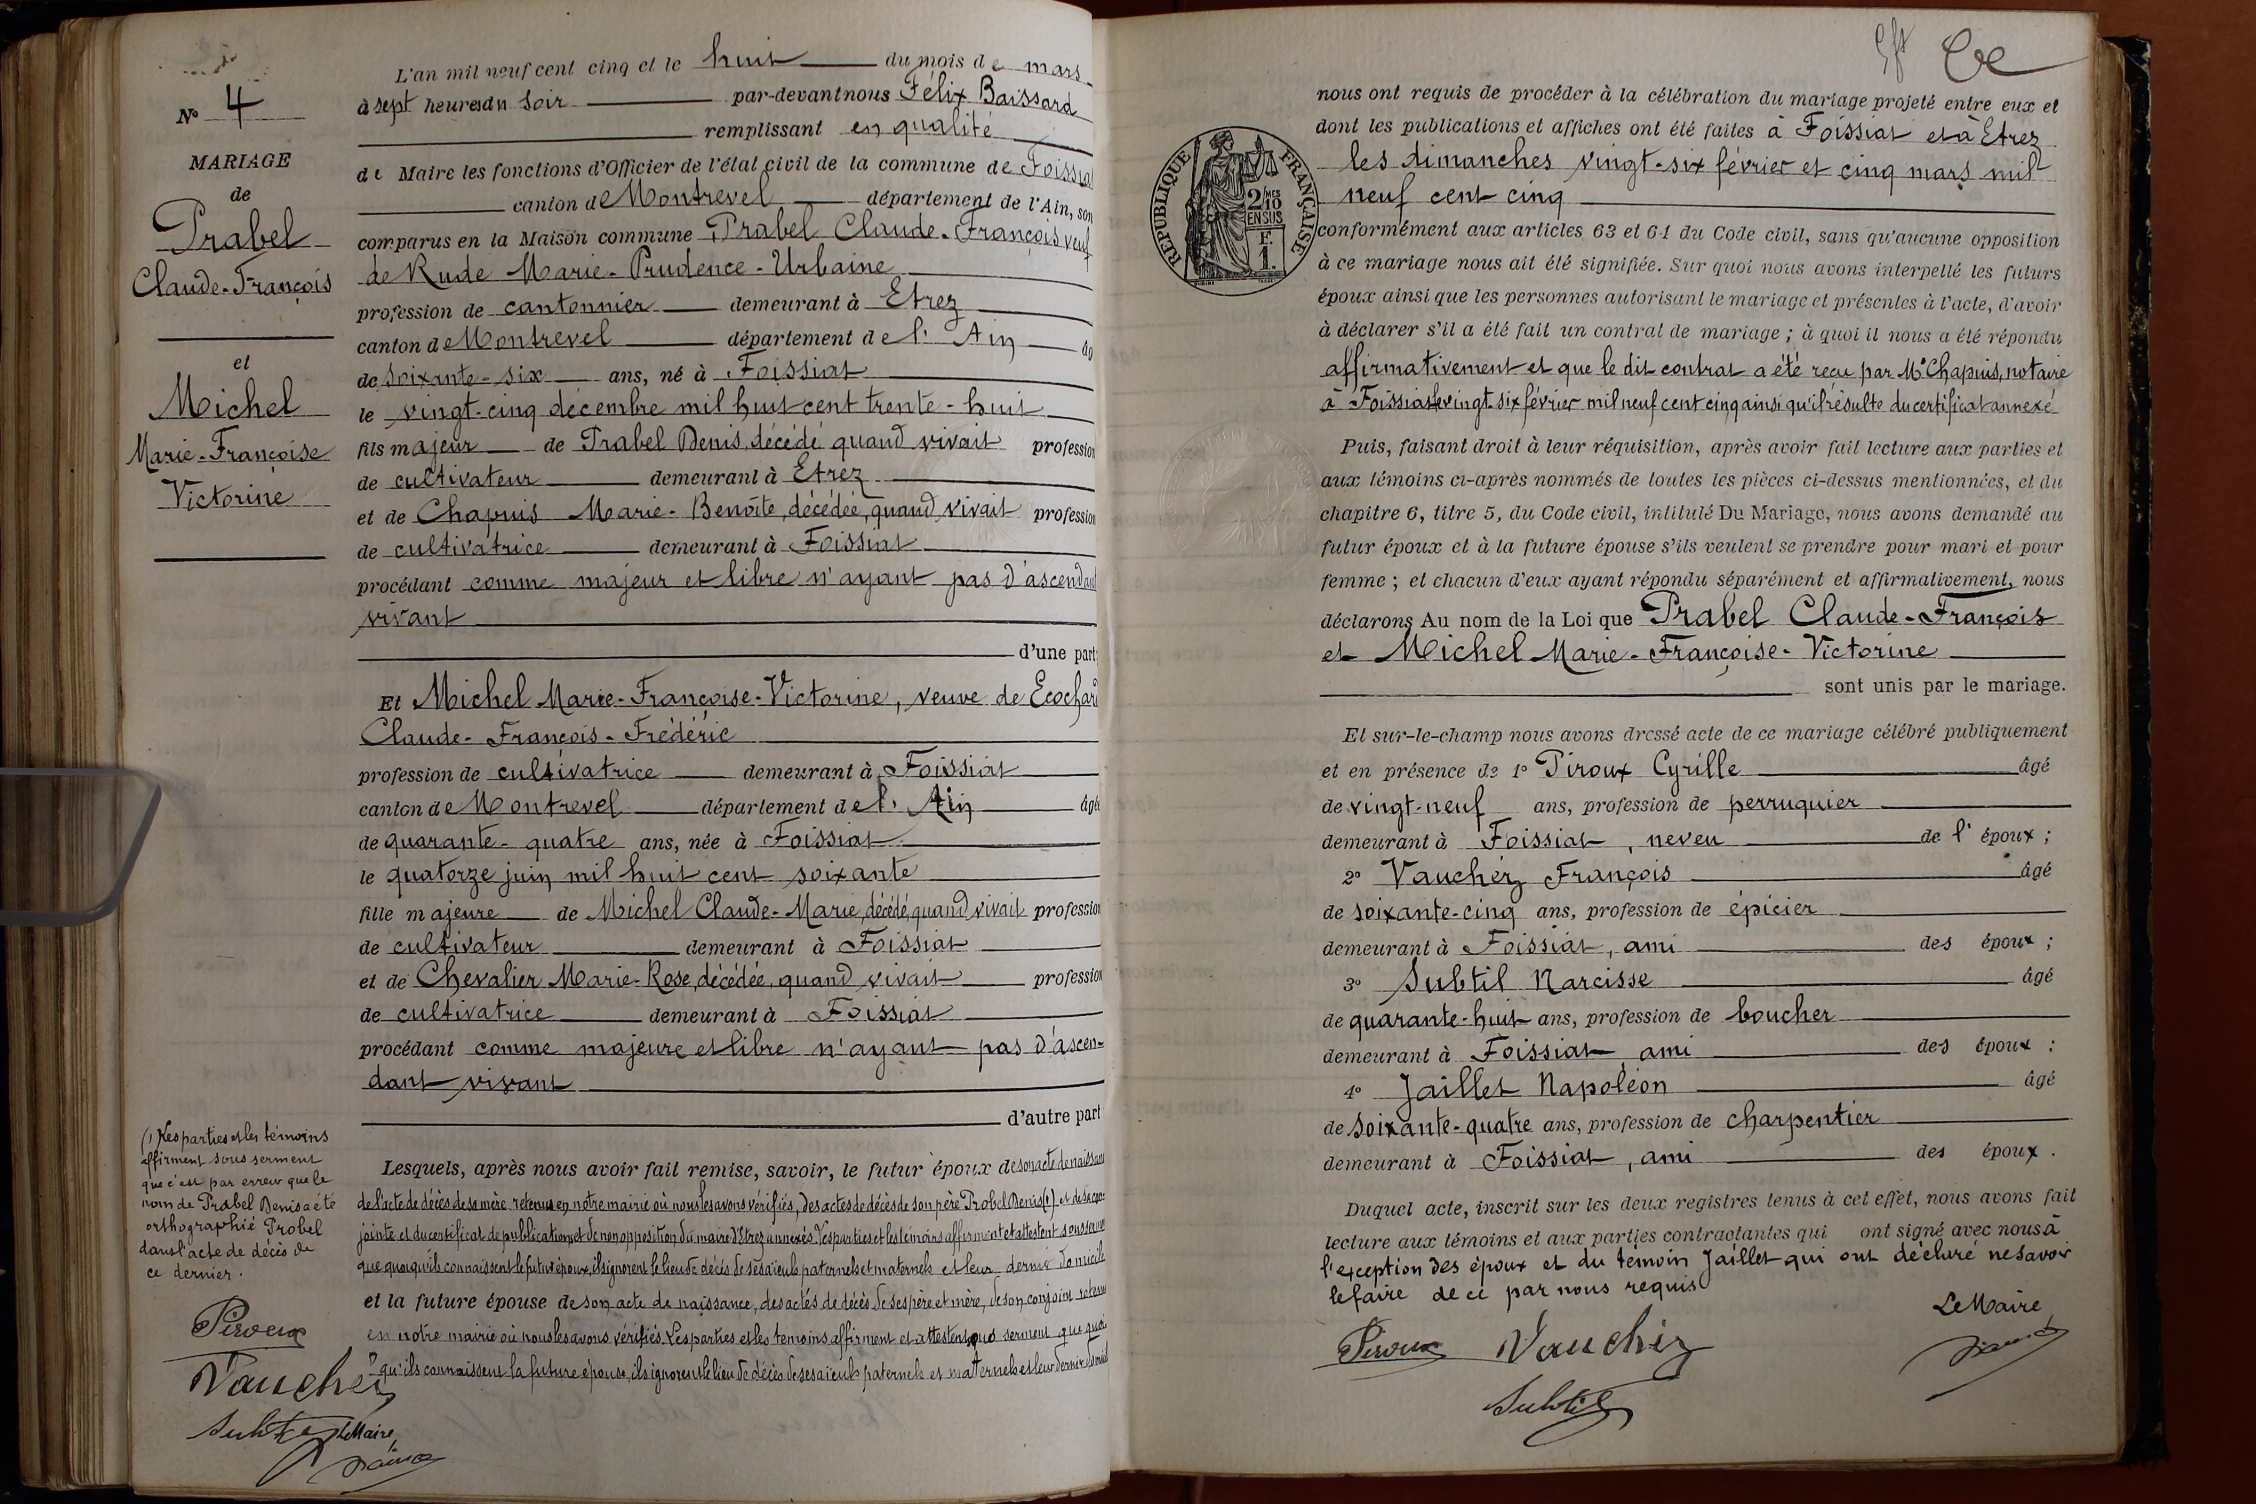 N° 4
MARIAGE
de
Prabel
Claude-François
et
Michel
Marie-Françoise
Victorine
L'an mil neuf cent cinq et le huit du mois de mars
à sept heures du soir par-devant nous Félix Baissard
remplissant en qualité
de Maire les fonctions d'Officier de l'état civil de la commune de Foissiat
canton de Montrevel département de l'Ain, son
comparus en la Maison commune Prabel Claude-François veuf
de Rude Marie-Prudence-Urbaine
profession de cantonnier demeurant à Etrez
canton de Montrevel département de l'Ain âg
de soixante-six ans, né à Foissiat
le vingt-cinq décembre mil huit cent trente-huit
fils majeur de Prabel Denis, décédé quand vivait profession
de cultivateur demeurant à Etrez
et de Chapuis Marie-Benoîte, décédée, quand vivait profession
de cultivatrice demeurant à Foissiat
procédant comme majeur et libre n'ayant pas d'ascendant
vivant
d'une part;
Et Michel Marie-Françoise-Victorine, veuve de Ecochard
Claude-François-Frédéric
profession de cultivatrice demeurant à Foissiat
canton de Montrevel département de l'Ain âgée
de quarante-quatre ans, née à Foissiat
le quatorze juin mil huit cent soixante
fille majeure de Michel Claude-Marie, décédé, quand vivait profession
de cultivateur demeurant à Foissiat
et de Chevalier Marie-Rose, décédée, quand vivait profession
de cultivatrice demeurant à Foissiat
procédant comme majeure et libre n'ayant pas d'ascen-
dant vivant
d'autre part
Lesquels, après nous avoir fait remise, savoir, le futur époux de son acte de naissance
de l'acte de décès de sa mère, retenus en notre mairie où nous les avons vérifiés, des actes de décès de son père Probel Denis (1) et de sa con-
jointe et du certificat de publication et de non opposition du maire d'Etrez annexés. Les parties et les témoins affirment et attestent sous serment
que quoiqu'ils connaissent le futur époux, ils ignorent le lieu de décès de ses aïeuls paternels et maternels et leur dernier domicile
et la future épouse de son acte de naissance, des actes de décès de ses père et mère, de son conjoint retenus
en notre mairie où nous les avons vérifiés. Les parties et les témoins affirment et attestent sous serment que quoi-
qu'ils connaissent la future épouse, ils ignorent le lieu de décès de ses aïeuls paternels et maternels et leur dernier domicile
(1) Les parties et les témoins
affirment sous serment
que c'est par erreur que le
nom de Prabel Denis a été
orthographié Probel
dans l'acte de décès de
ce dernier.
Piroux
Vauchez
Subtil
Le Maire,
nous ont requis de procéder à la célébration du mariage projeté entre eux et
dont les publications et affiches ont été faites à Foissiat et à Etrez
les dimanches vingt-six février et cinq mars mil
neuf cent cinq
RÉPUBLIQUE FRANÇAISE
2/10 MES
EN SUS
F.
1.
conformément aux articles 63 et 64 du Code civil, sans qu'aucune opposition
à ce mariage nous ait été signifiée. Sur quoi nous avons interpellé les futurs
époux ainsi que les personnes autorisant le mariage et présentes à l'acte, d'avoir
à déclarer s'il a été fait un contrat de mariage ; à quoi il nous a été répondu
affirmativement et que le dit contrat a été reçu par Me Chapuis, notaire
à Foissiat le vingt-six février mil neuf cent cinq ainsi qu'il résulte du certificat annexé
Puis, faisant droit à leur réquisition, après avoir fait lecture aux parties et
aux témoins ci-après nommés de toutes les pièces ci-dessus mentionnées, et du
chapitre 6, titre 5, du Code civil, intitulé Du Mariage, nous avons demandé au
futur époux et à la future épouse s'ils veulent se prendre pour mari et pour
femme ; et chacun d'eux ayant répondu séparément et affirmativement, nous
déclarons Au nom de la Loi que Prabel Claude-François
et Michel Marie-Françoise-Victorine
sont unis par le mariage.
Et sur-le-champ nous avons dressé acte de ce mariage célébré publiquement
et en présence de 1° Piroux Cyrille âgé
de vingt-neuf ans, profession de perruquier
demeurant à Foissiat, neveu de l'époux ;
2° Vauchez François âgé
de soixante-cinq ans, profession de épicier
demeurant à Foissiat, ami des époux ;
3° Subtil Narcisse âgé
de quarante-huit ans, profession de boucher
demeurant à Foissiat, ami des époux ;
4° Jaillet Napoléon âgé
de soixante-quatre ans, profession de charpentier
demeurant à Foissiat, ami des époux.
Duquel acte, inscrit sur les deux registres tenus à cet effet, nous avons fait
lecture aux témoins et aux parties contractantes qui ont signé avec nous à
l'exception des époux et du témoin Jaillet qui ont déclaré ne savoir
le faire de ce par nous requis
Le Maire
Piroux Vauchez
Subtil